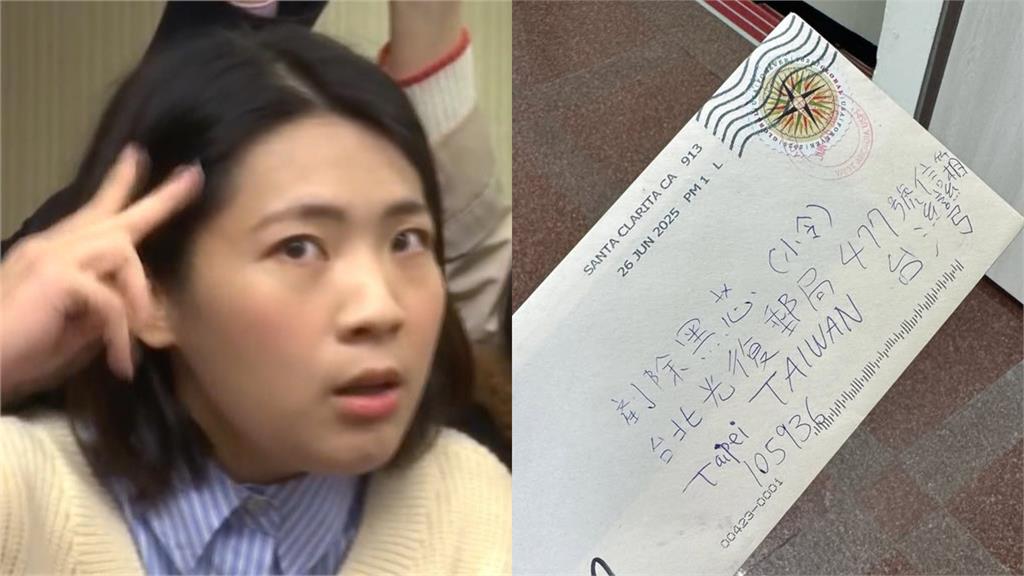 SANTA CLARITA CA 913
26 JUN 2025 PM 1 L
剷除黑心 (小令)
台北光復郵局 477 號信箱
Taipei TAIWAN
105936
00423-0001